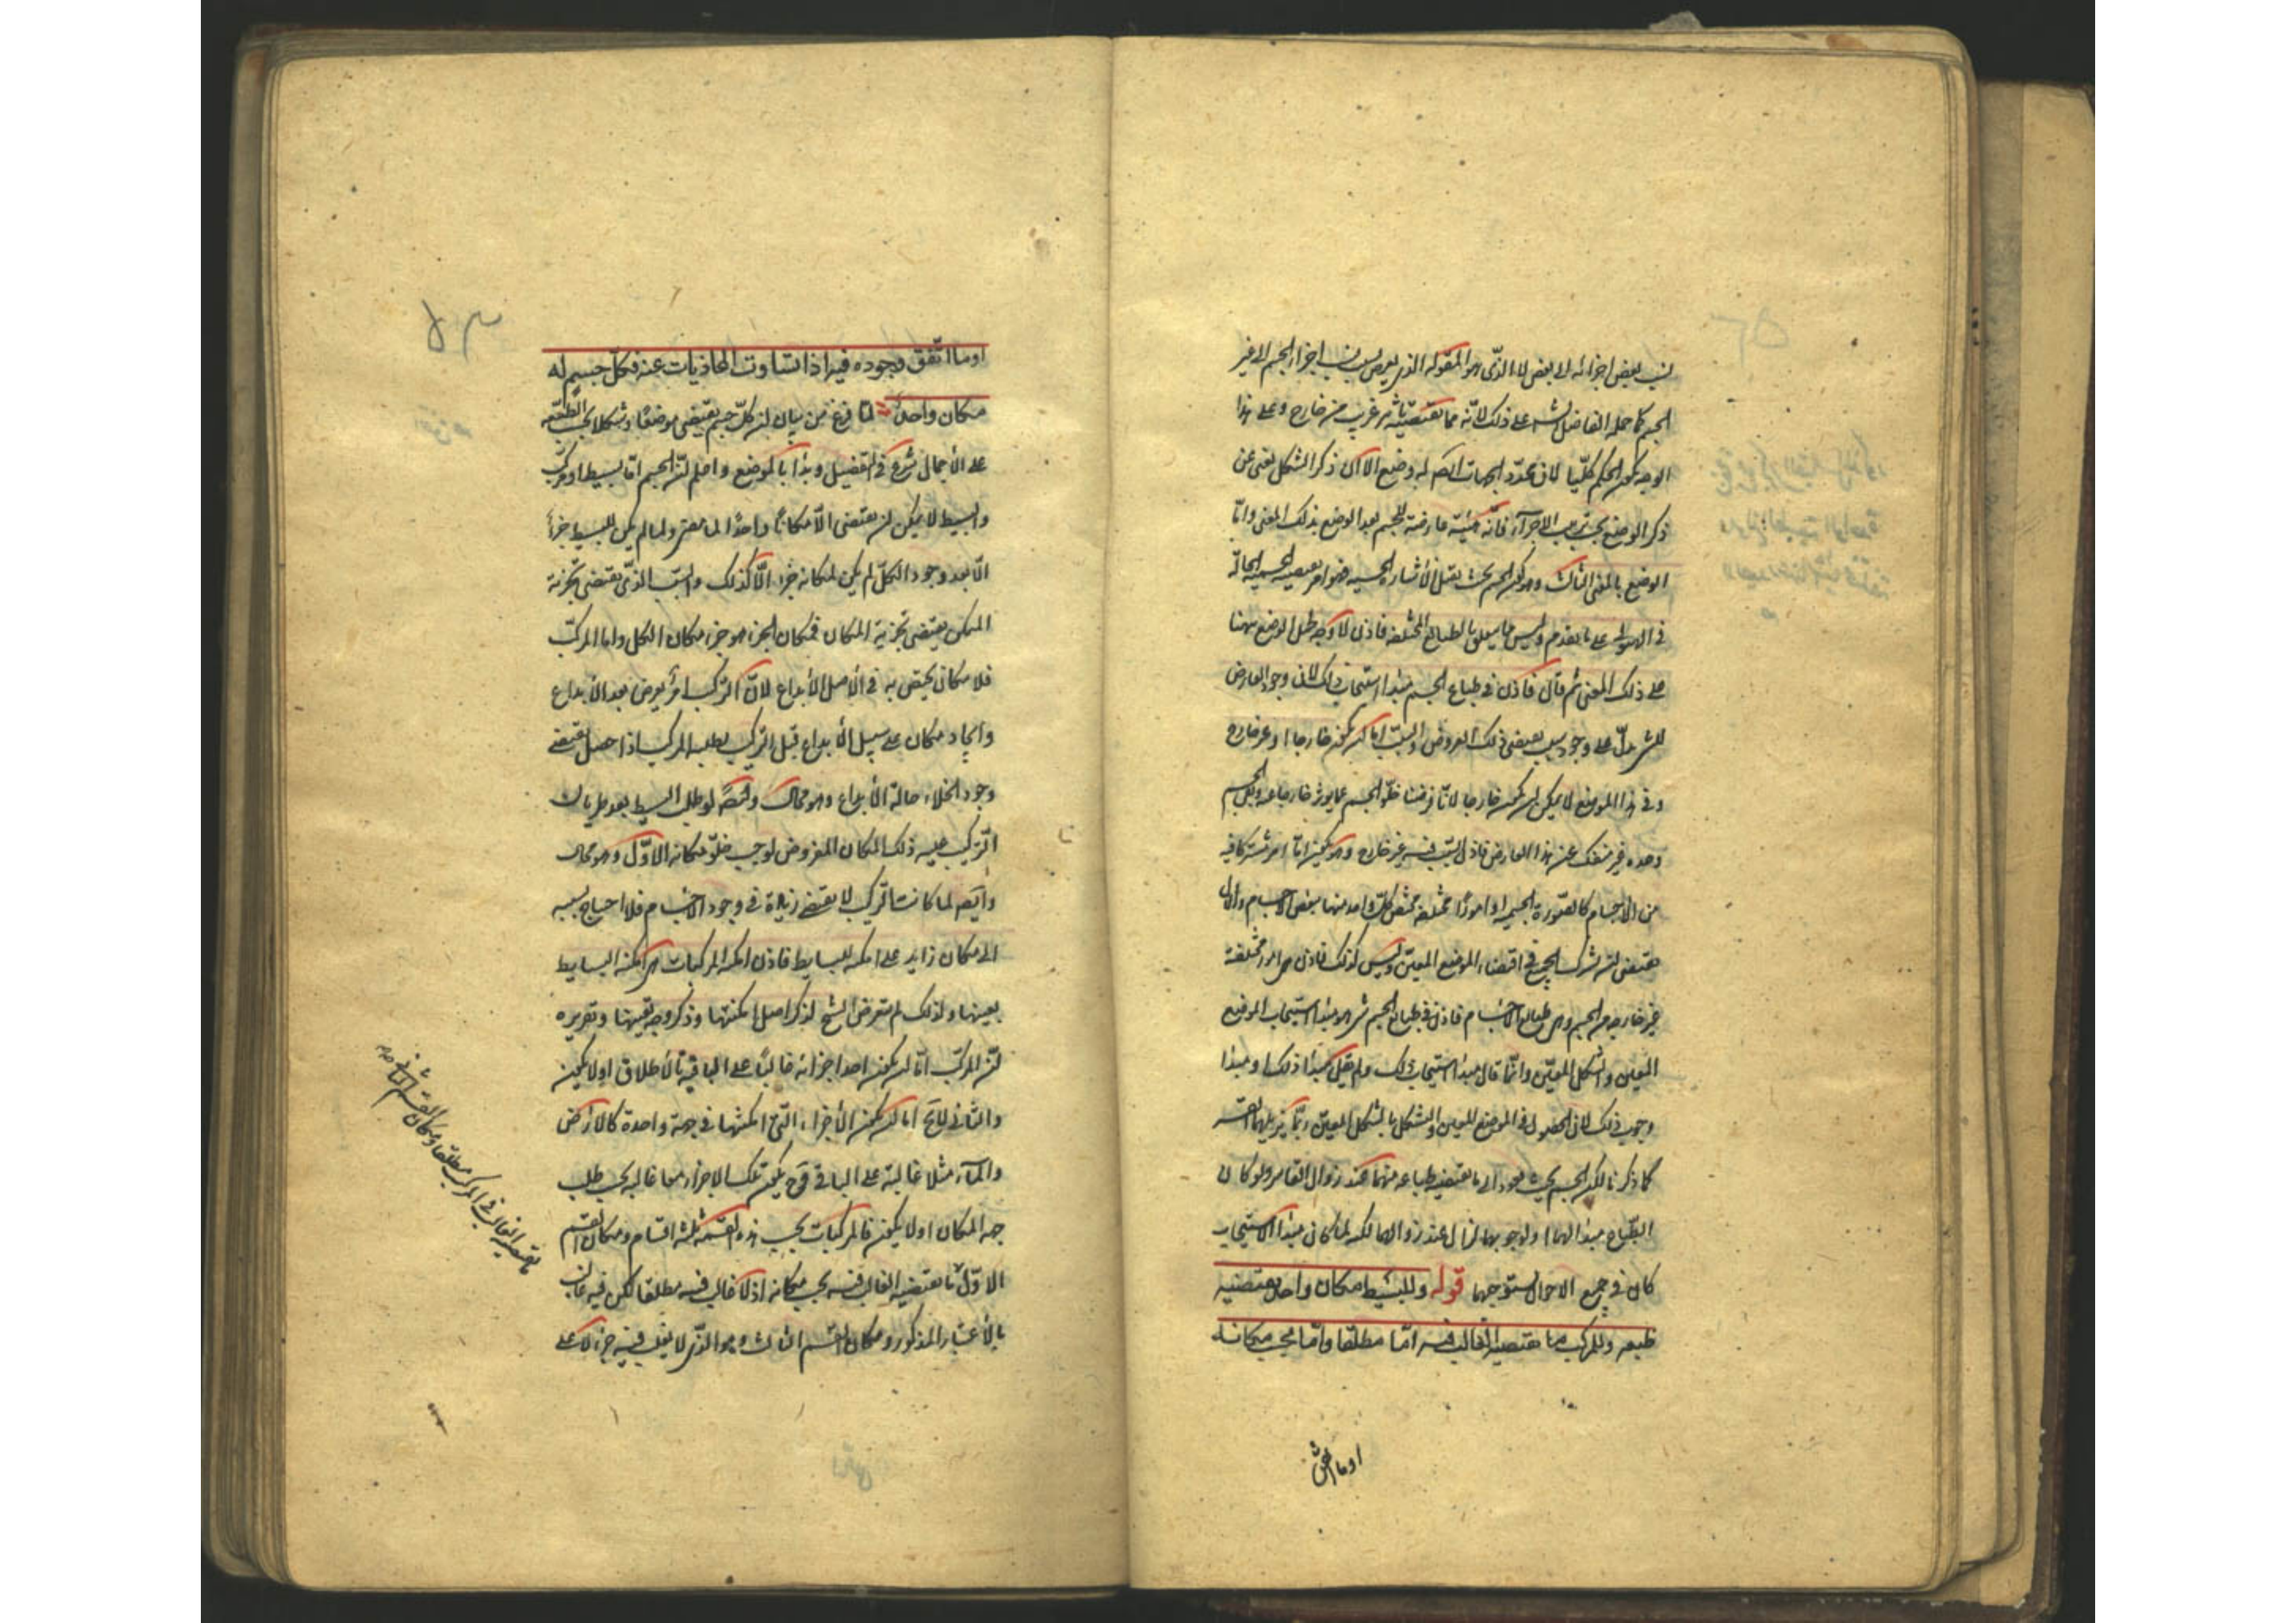 نسب بعض اجزائه الى بعض لا الذى هو المقولة الذى يعرض بسبب نسب اجزاء الجسم الى غير
الجسم كما حمله الفاضل الشارح على ذلك لانه مما يقتضيه تاثير غريب من خارج وعلى هذا
الوجه يكون الحكم كليا لان محدد الجهات ايضا له وضع الا ان ذكر الشكل يغنى عن
ذكر الوضع بحسب ترتيب الاجزاء فانه هيئة عارضة للجسم بعد الوضع بذلك المعنى واما
الوضع بالمعنى الثالث وهو كون الجسم بحيث يقبل الاشارة الحسية فهو امر تقتضيه الجسمية الحالة
فى الهيولى على ما تقدم وليس مما يتعلق بالطبائع المختلفة فاذن لا وجه لحمل الوضع ههنا
على ذلك المعنى ثم قال فاذن فى طباع الجسم مبدا استيجاب ذلك لان وجود العارض
للشىء يدل على وجود سبب يقتضى ذلك العروض والسبب اما ان يكون خارجا او غير خارج
وفى هذا الموضع لا يمكن ان يكون خارجا لانا فرضنا خلو الجسم عما يوثر خارجا عنه وبقى الجسم
وحده غير منفك عن هذا العارض فاذن السبب فيه غير خارج وهو يكون اما امر مشترك فيه
من الاجسام كالصورة الجسمية او امورا مختلفة يختص كل واحد منها ببعض الاجسام والاول
يقتضى ان يشترك الجميع فى اقتضاء الموضع المعين وليس كذلك فاذن هى امور مختلفة
غير خارجة عن الجسم وهى طبايع الاجسام فاذن فى طباع الجسم شىء هو مبدا استيجاب الموضع
المعين والشكل المعين وانما قال مبدا استيجاب ذلك ولم يقل مبدا ذلك او مبدا
وجوب ذلك لان الحصول فى الموضع المعين والتشكل بالشكل المعين ربما يزيلهما القسر
كما ذكرنا لكن الجسم بحيث يعود الى ما يقتضيه طباعه منهما عند زوال القاسر ولو كان
الطباع مبدا لهما او لوجوبهما لزال عند زوالهما لكنه لما كان مبدا الاستيجاب
كان فى جميع الاحوال مستوجبهما قوله وللبسيط مكان واحد يقتضيه
طبعه وللمركب ما يقتضيه الغالب فيه اما مطلقا واما بحسب مكانه
او ما اتفق
او ما اتفق وجوده فيه اذا تساوت المحاذيات عنه فكل جسم له
مكان واحد لما فرغ من بيان ان كل جسم يقتضى موضعا وشكلا بحسب الطبيعة
على الاجمال شرع فى التفصيل وبدا بالموضع واعلم ان الجسم اما بسيط او مركب
والبسيط لا يمكن ان يقتضى الا مكانا واحدا لما مضى ولما لم يكن للبسيط جزء
الا بعد وجود الكل لم يكن لمكانه جزء الا كذلك والسبب الذى يقتضى تجزئة
المتمكن يقتضى تجزية المكان فمكان الجزء هو جزء مكان الكل واما المركب
فلا مكان يختص به فى الاصل الابداع لان التركيب امر يعرض بعد الابداع
وايجاد مكان على سبيل الابداع قبل التركيب يطلبه المركب اذا حصل يقتضى
وجود الخلاء حالة الابداع وهو محال وايضا لو طلب البسيط بعد طريان
التركيب عليه ذلك المكان المفروض لوجب خلو مكانه الاول وهو محال
وايضا لما كانت التركيب لا يقتضى زيادة فى وجود الاجسام فلا احتياج بسببه
الى مكان زايد على امكنة البسايط فاذن امكنة المركبات هى امكنة البسايط
بعينها ولذلك لم يتعرض الشيخ لذكر اصل امكنتها وذكر وجه تعينها وتقريره
ان المركب اما ان يكون احد اجزائه غالبا على الباقية بالاطلاق او لا يكون
والثانى لا يخ اما ان يكون الاجزاء التى امكنتها فى جهة واحدة كالارض
والماء مثلا غالبة على الباقى وح يكون تلك الاجزاء معا غالبة بحسب طلب
جهة المكان او لا يكون فالمركبات بحسب هذه القسمة ثلثة اقسام ومكان القسم
الاول ما يقتضيه الغالب فيه بحسب مكانه اذ لا غالب فيه مطلقا لكن فيه غالب
بالاعتبار المذكور ومكان القسم الثالث وهو الذى لا يغلب فيه جزء لا على
ما يقتضيه الغالب فى المركب مطلقا ومكان القسم الثانى